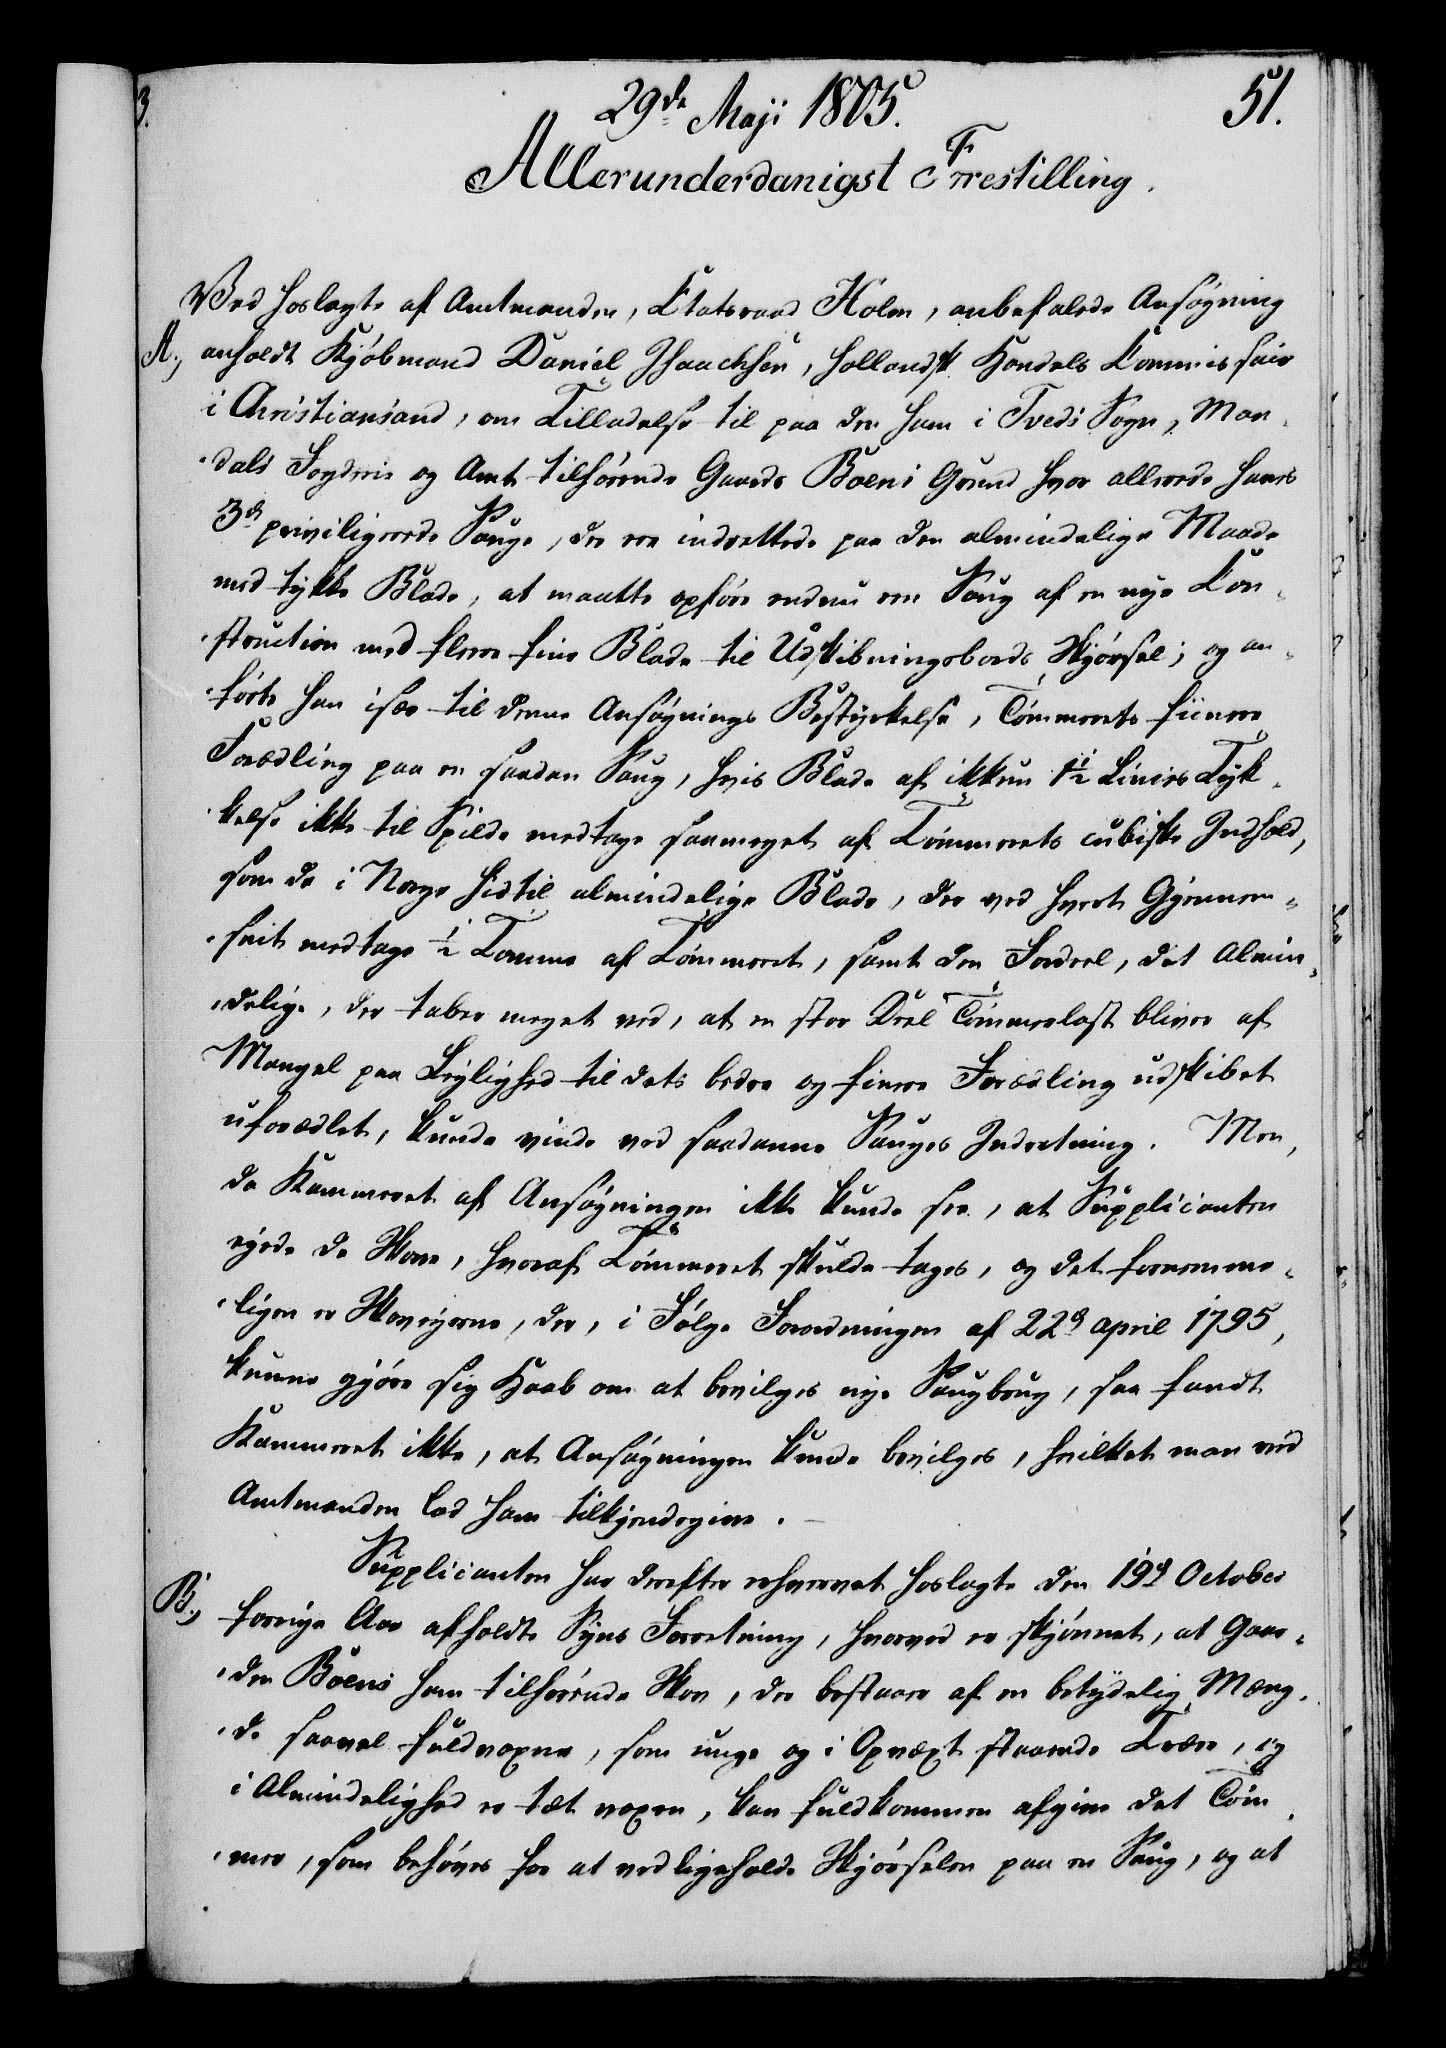 3.
29de Maji 1805.
51.
Allerunderdanigst Forestilling.
Ved hoslagte af Amtmanden, Etatsraad Holm, anbefalede Ansøgning
A., anholdt Kjøbmand Daniel Isaachsen, hollandsk Handels Commissair
i Christiansand, om Tilladelse til paa den ham i Tveds Sogn, Man-
-dals Fogderie og Amt tilhørende Gaards Boens Grund hvor allerede haves
3de priviligerede Sauge, der ere indrettede paa den almindelige Maade
med tykke Blade, at maatte opføre endnu een Saug af en nye Con-
-struction med flere fine Blade til Udskibningsbords Skjørsel; og an-
-førte han især til denne Ansøgnings Bestyrkelse, Tømmerets fiinere
Forædling paa en saadan Saug, hvis Blade af ikkun 1½ Liniers Tyk-
-kelse ikke til Spilde medtage saameget af Tømmerets cubiske Indhold,
som de i Norge hidtil almindelige Blade, der ved hvert Gjennem-
-snit medtage ½ Tomme af Tømmeret, samt den Fordeel, det Almin-
-delige, der taber meget ved, at en stor Deel Tømmerlast bliver af
Mangel paa Leylighed til dets bedre og finere Forædling udskibet
uforædlet, kunde vinde ved saadanne Sauges Indretning. Men,
da Kammeret af Ansøgningen ikke kunde see, at Supplicanten
eyede de Skove, hvoraf Tømmeret skulde tages, og det fornemme-
-ligen er Skoveyerne, der, i Følge Forordningen af 22d april 1795,
kunne gjøre sig Haab om at bevilges nye Saugbrug, saa fandt
Kammeret ikke, at Ansøgningen kunde bevilges, hvilket man ved
Amtmanden lod ham tilkjendegive.
Supplicanten har derefter erhvervet hoslagte den 19d October
B., forrige Aar afholdte Syns Forretning, hvorved er skjønnet, at Gaar-
-den Boens ham tilhørende Skov, der bestaaer af en betydelig Mæng-
-de saavel fuldvoxne, som unge og i Opvæxt staaende Træer, og
i Almindelighed er tæt voxen, kan fuldkommen afgive det Tøm-
-mer, som behøves for at vedligeholde Skjørselen paa en Saug, og at